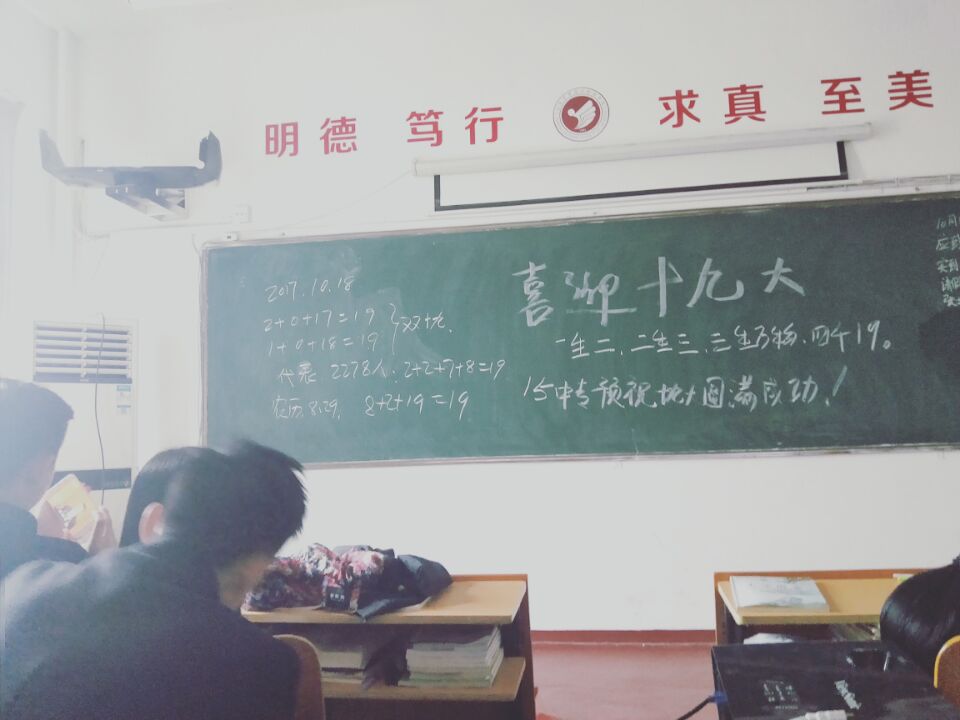 明德 笃行 求真 至美
2017.10.18
2+0+17=19
1+0+18=19
代表 2278人：2+2+7+8=19
农历8.29, 8+2+19=19
喜迎十九大
一生二、二生三、三生万物、四个19。
15中专预祝 圆满成功！
10月
应到
实到